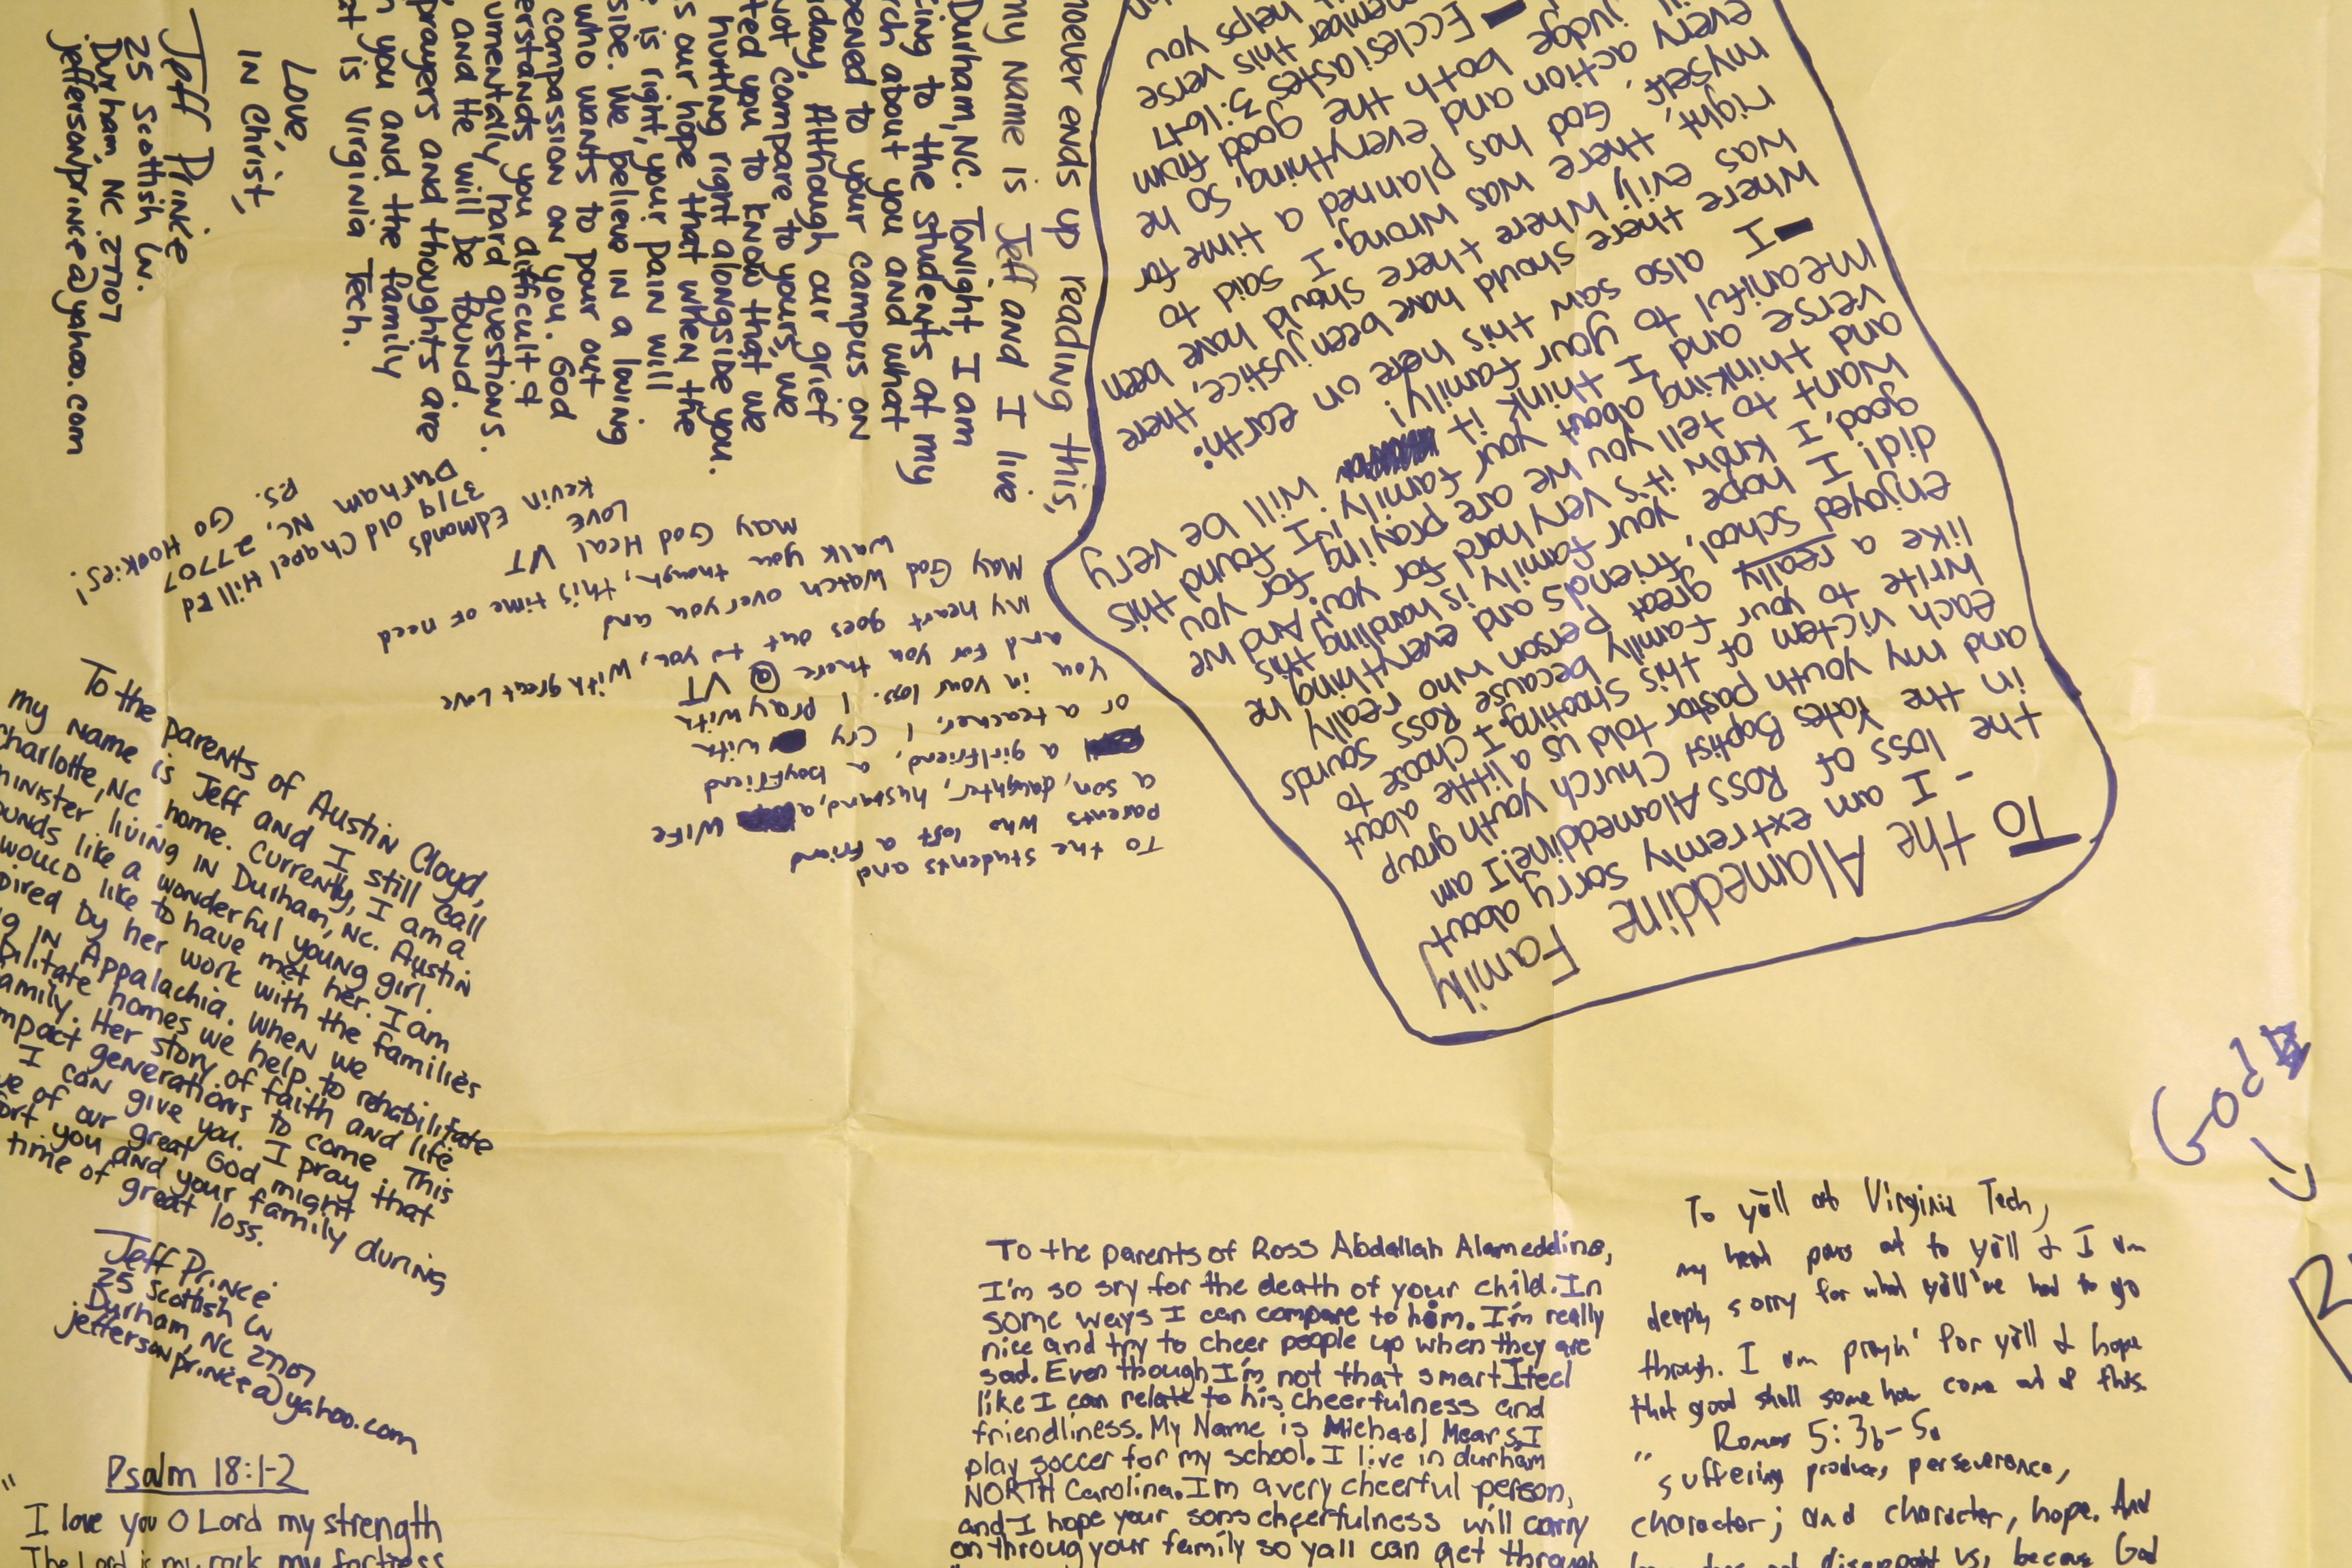 noever ends up reading this,
my name is Jeff and I live
Durham, NC. Tonight I am
ing to the students at my
rch about you and what
pened to your campus on
nday. Although our grief
not compare to yours, we
ted you to know that we
hurting right alongside you.
s our hope that when the
e is right, your pain will
side. We believe in a loving
who wants to pour out
compassion on you. God
erstands you difficult &
umentally hard questions.
and He will be found.
prayers and thoughts are
h you and the family
at is Virginia Tech.
Love,
in Christ,
Jeff Prince
25 Scottish Ln.
Durham, NC 27707
jeffersonprince@yahoo.com
To the Alameddine Family
- I am extremly sorry about
the loss of Ross Alameddine! I am
in the Yates Baptist Church youth group
and my youth pastor told us a little about
each victem of this shooting. I choose to
write to your family because Ross sounds
like a really great person who really
enjoyed school, friends and everything he
did! I hope your family is handling this
good, I know it's very hard for you! And we
want to tell you we are praying for you
and thinking about your family! I found this
verse and I think it will be very
meaniful to your family!
I also saw this here on earth:
Where there should have been justice, there
was evil; where there should have been
right, there was wrong. I said to
myself, God has planned a time for
every action and everything, so he
judge both the good from
Ecclesiastes 3:16-17
member this verse
helps you
To the students and
parents who lost a friend
a son, daughter, husband, a wife
a girlfriend, a boyfriend
or a teacher, I cry with
you in your loss. I pray with
and for you there @ VT
My heart goes out to you, with great love
May God watch over you and
walk you though, this time of need
May God Heal VT
Love
Kevin Edmonds
3719 old Chapel Hill Rd
Durham NC, 27707
P.S. Go Hookies!
To the parents of Austin Cloyd,
my name is Jeff and I still call
Charlotte, NC home. Currently, I am a
minister living in Durham, NC. Austin
ounds like a wonderful young girl.
would like to have met her. I am
pired by her work with the families
g in Appalachia. When we
bilitate homes we help to rehabilitate
amily. Her story of faith and life
mpact generations to come. This
I can give you. I pray that
ve of our great God might
fort you and your family during
time of great loss.
Jeff Prince
25 Scottish Ln
Durham, NC 27707
jeffersonprince@yahoo.com
Psalm 18:1-2
"
I love you O Lord my strength
The Lord is my rock my fortress
To the parents of Ross Abdallah Alameddine,
I'm so sry for the death of your child. In
some ways I can compare to him. I'm really
nice and try to cheer people up when they are
sad. Even though I'm not that smart I feel
like I can relate to his cheerfulness and
friendliness. My Name is Michael Mears, I
play soccer for my school. I live in durham
NORTH Carolina. Im a very cheerful person,
and I hope your sons cheerfulness will carry
on throug your family so yall can get through
God
To y'all at Virginia Tech,
my heart pours out to y'all & I am
deeply sorry for what y'all've had to go
through. I am prayin' for y'all & hope
that good shall some how come out of this.
Romans 5:3b-5a
"suffering produces perseverence,
character; and character, hope. And
disappoint us, because God